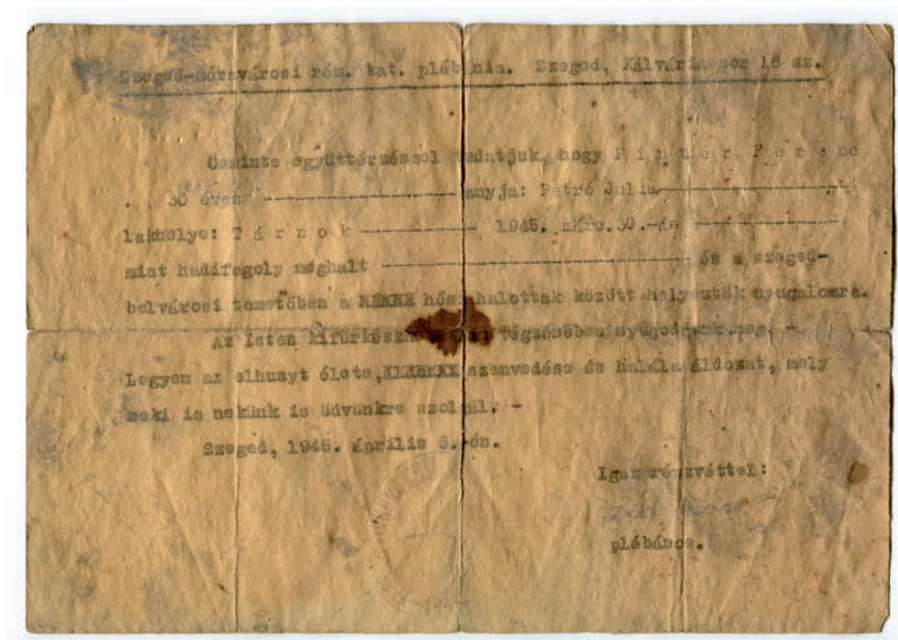 Szeged-Móravárosi róm. kat. plébánia. Szeged, Kálvária sor 16 sz.
Őszinte együttérzéssel tudatjuk, hogy P i n t é r F e r e n c
30 éves ---------------- anyja: Petró Julia ----------------
lakhelye: T á r n o k ---------- 1945. márc. 30.-án ------------
mint hadifogoly meghalt ------------------------- és a szeged-
belvárosi temetőben a hősi halottak között helyeztük nyugalomra.
Az Isten végzésében nyugodjunk meg. -
Legyen az elhunyt élete, szenvedése és halála áldozat, mely
neki is nekünk is üdvünkre szolgál. -
Szeged, 1945. április 6.-én.
Igaz részvéttel:
plébános.